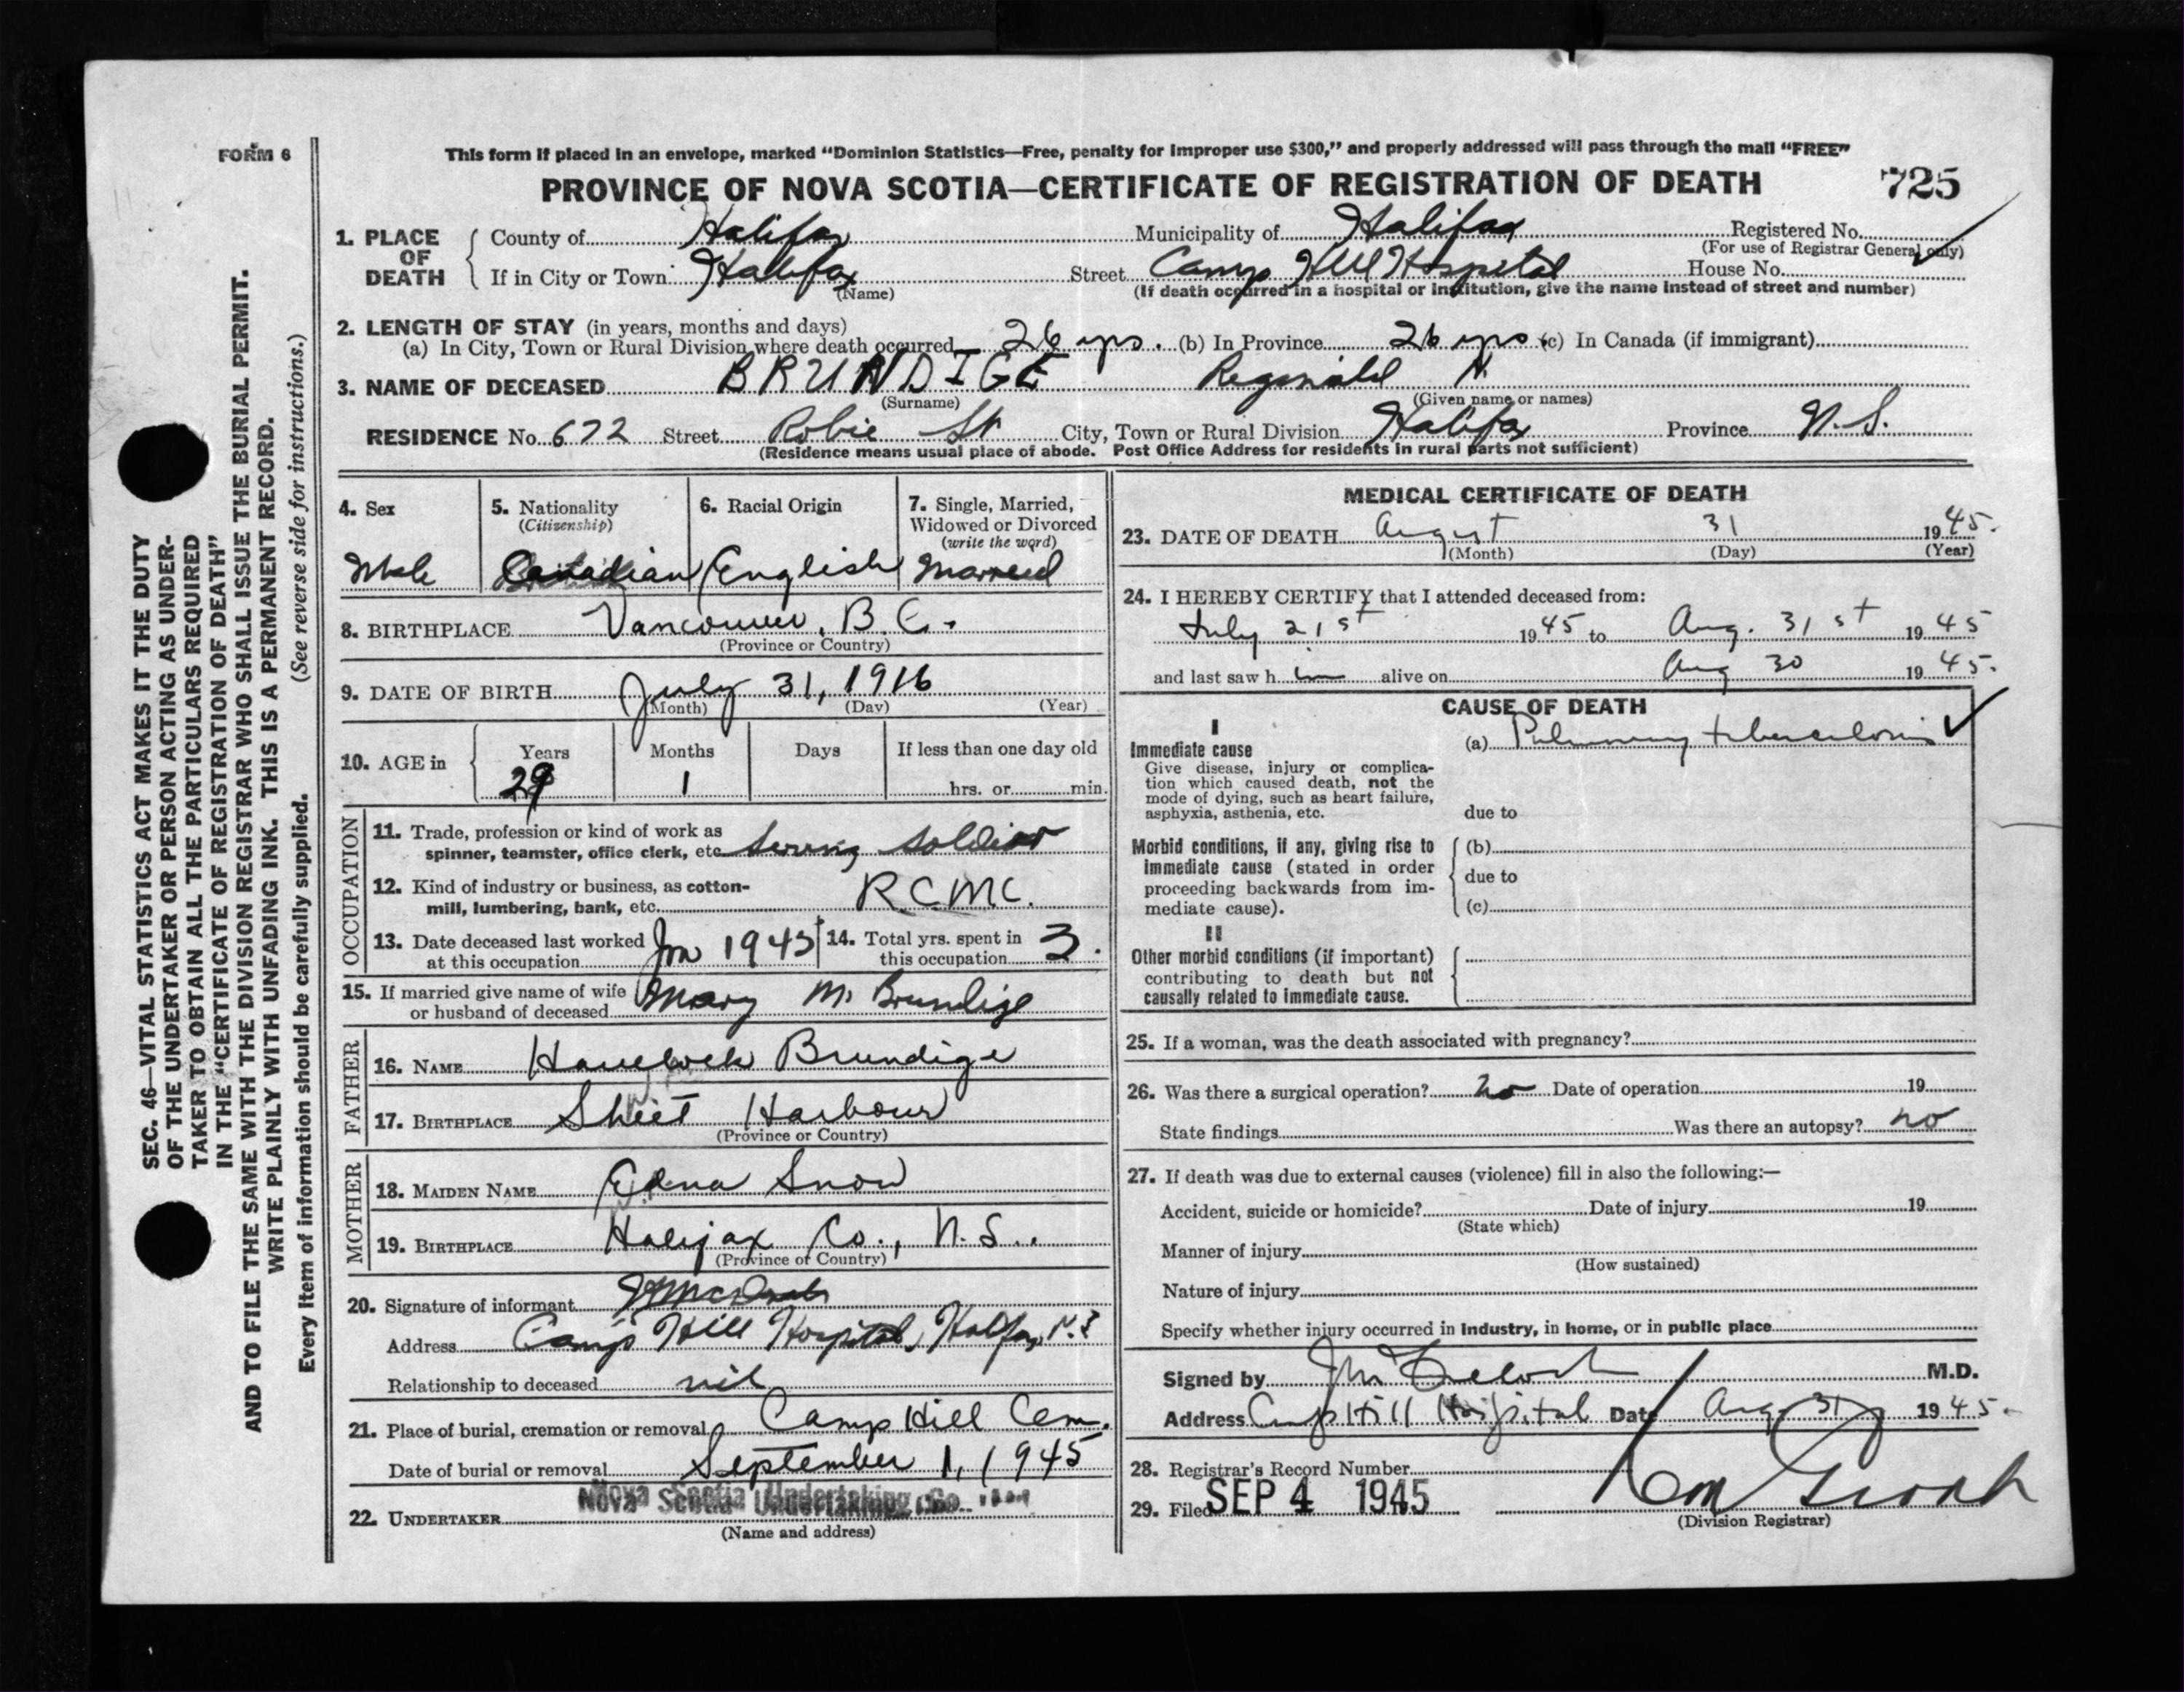 FORM 6
This form if placed in an envelope, marked “Dominion Statistics—Free, penalty for improper use $300,” and properly addressed will pass through the mail “FREE”
PROVINCE OF NOVA SCOTIA—CERTIFICATE OF REGISTRATION OF DEATH 725
1. PLACE OF DEATH County of Halifax Municipality of Halifax Registered No.
(For use of Registrar General only)
If in City or Town Halifax Street Camp Hill Hospital House No.
(Name) (If death occurred in a hospital or institution, give the name instead of street and number)
2. LENGTH OF STAY (in years, months and days)
(a) In City, Town or Rural Division where death occurred 26 yrs. (b) In Province 26 yrs (c) In Canada (if immigrant)
3. NAME OF DECEASED BRUNDIGE Reginald N.
(Surname) (Given name or names)
RESIDENCE No. 672 Street Robie St City, Town or Rural Division Halifax Province N.S.
(Residence means usual place of abode. Post Office Address for residents in rural parts not sufficient)
4. Sex 5. Nationality (Citizenship) 6. Racial Origin 7. Single, Married, Widowed or Divorced (write the word)
Male Canadian English Married
8. BIRTHPLACE Vancouver, B.C.
(Province or Country)
9. DATE OF BIRTH July 31, 1916
(Month) (Day) (Year)
10. AGE in Years Months Days If less than one day old
29 1 hrs. or min.
OCCUPATION
11. Trade, profession or kind of work as
spinner, teamster, office clerk, etc. Serving soldier
12. Kind of industry or business, as cotton-
mill, lumbering, bank, etc. RCMC.
13. Date deceased last worked at this occupation Jan 1945 14. Total yrs. spent in this occupation 3.
15. If married give name of wife
or husband of deceased Mary M. Brundige
FATHER
16. NAME Havelock Brundige
17. BIRTHPLACE Sheet Harbour
(Province or Country)
MOTHER
18. MAIDEN NAME Edna Snow
19. BIRTHPLACE Halifax Co., N.S.
(Province or Country)
20. Signature of informant
Address Camp Hill Hospital, Halifax, N.S
Relationship to deceased nil
21. Place of burial, cremation or removal Camp Hill Cem.
Date of burial or removal September 1, 1945
22. UNDERTAKER Nova Scotia Undertaking Co.
(Name and address)
MEDICAL CERTIFICATE OF DEATH
23. DATE OF DEATH August 31 1945.
(Month) (Day) (Year)
24. I HEREBY CERTIFY that I attended deceased from:
July 21st 1945 to Aug. 31st 1945
and last saw him alive on Aug 30 1945.
CAUSE OF DEATH
I
Immediate cause (a) Pulmonary tuberculosis
Give disease, injury or complica-
tion which caused death, not the
mode of dying, such as heart failure,
asphyxia, asthenia, etc. due to
Morbid conditions, if any, giving rise to (b)
immediate cause (stated in order
proceeding backwards from im- due to
mediate cause). (c)
II
Other morbid conditions (if important)
contributing to death but not
causally related to immediate cause.
25. If a woman, was the death associated with pregnancy?
26. Was there a surgical operation? no Date of operation 19
State findings Was there an autopsy? no
27. If death was due to external causes (violence) fill in also the following:—
Accident, suicide or homicide? Date of injury 19
(State which)
Manner of injury
(How sustained)
Nature of injury
Specify whether injury occurred in industry, in home, or in public place
Signed by M.D.
Address Camp Hill Hospital Date Aug 31 1945.
28. Registrar's Record Number
29. Filed SEP 4 1945
(Division Registrar)
SEC. 46—VITAL STATISTICS ACT MAKES IT THE DUTY
OF THE UNDERTAKER OR PERSON ACTING AS UNDER-
TAKER TO OBTAIN ALL THE PARTICULARS REQUIRED
IN THE “CERTIFICATE OF REGISTRATION OF DEATH”
AND TO FILE THE SAME WITH THE DIVISION REGISTRAR WHO SHALL ISSUE THE BURIAL PERMIT.
WRITE PLAINLY WITH UNFADING INK. THIS IS A PERMANENT RECORD.
Every item of information should be carefully supplied. (See reverse side for instructions.)